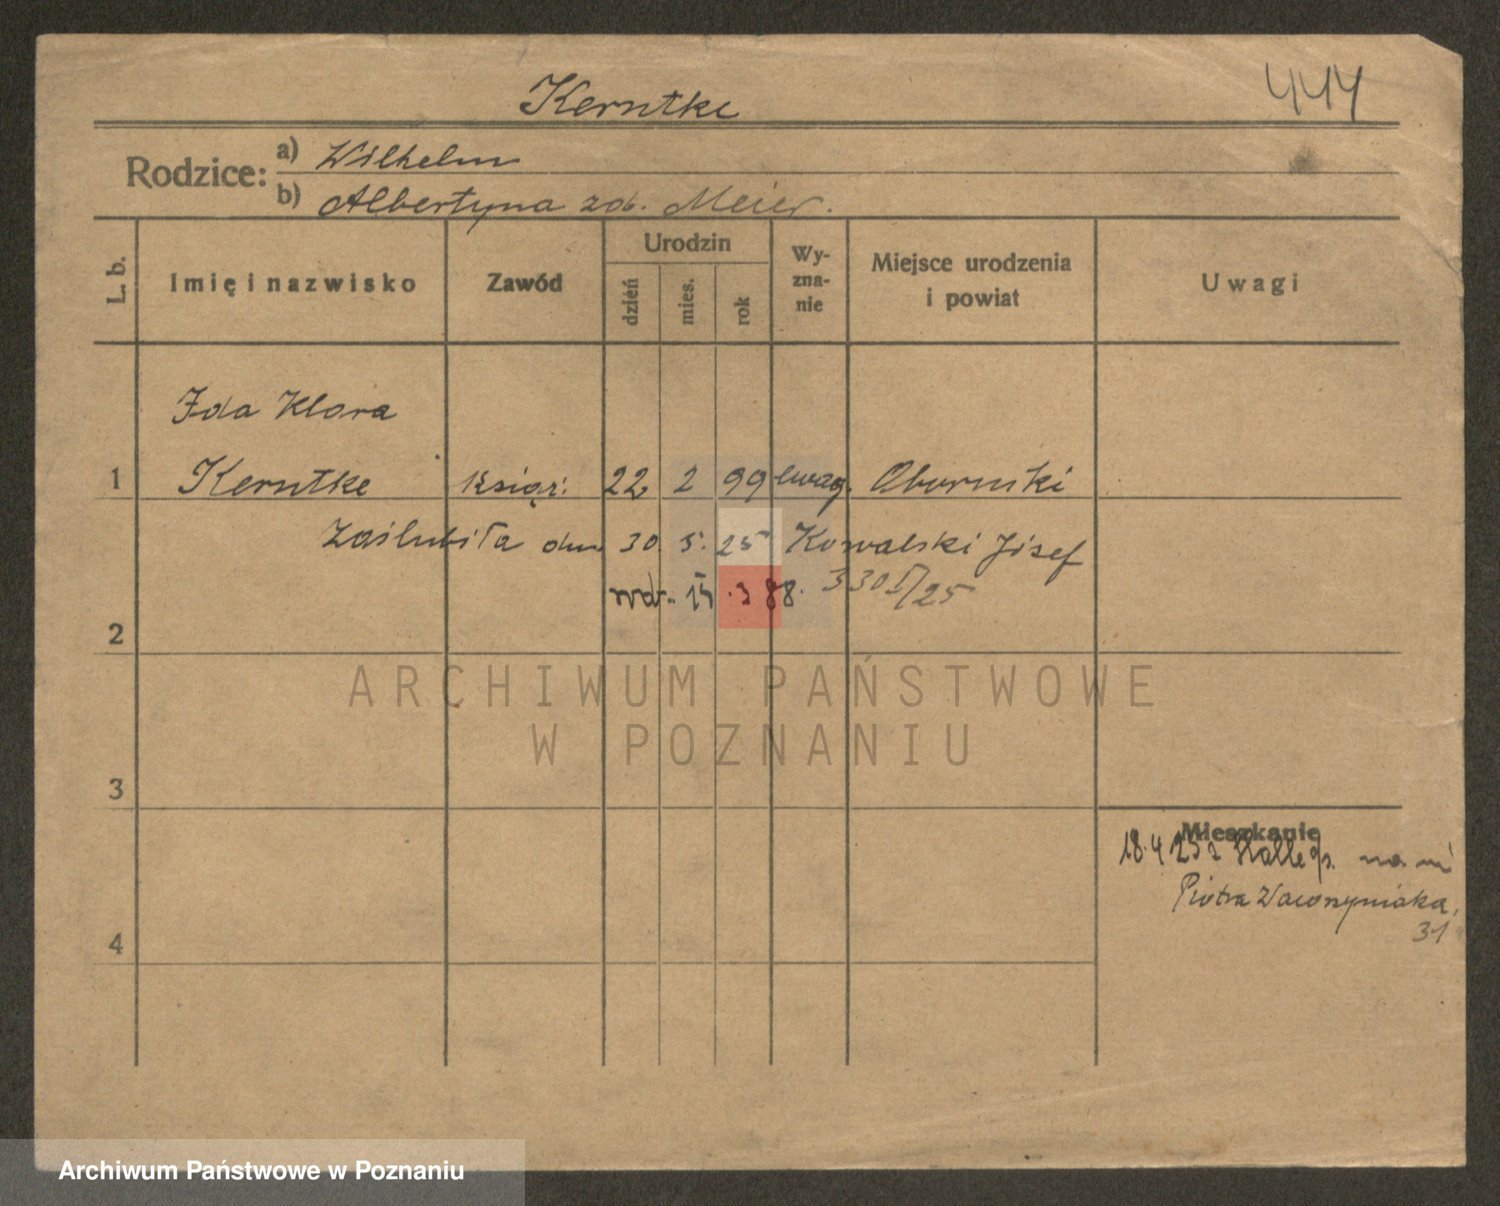 Kerntke
444
Rodzice: a) Wilhelm
b) Albertyna zd. Meier.
L. b.
Imię i nazwisko
Zawód
Urodzin
dzień
mies.
rok
Wy-
zna-
nie
Miejsce urodzenia
i powiat
Uwagi
Ida Klara
1 Kerntke Książ. 22 2 99 ewag. Oborniki
Zaślubiła dn. 30. 5. 25 Kowalski Józef
3 88. 330 I/25
2
3
4
Mieszkanie
18.4 25 z Halle
Piotra Wawrzyniaka,
31
ARCHIWUM PAŃSTWOWE
W POZNANIU
Archiwum Państwowe w Poznaniu